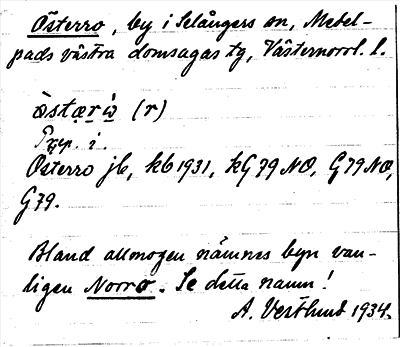 Österro, by i Selångers sn, Medel-
pads västra domsagas tg, Västernorrl. l.
òstær�ὼ (r)
Prep. i.
Österro jb, kb 1931, kG 79 NO, G 79 NO,
G 79.
Bland allmogen nämnes byn van-
ligen Norro. Se detta namn!
A. Vestlund 1934.